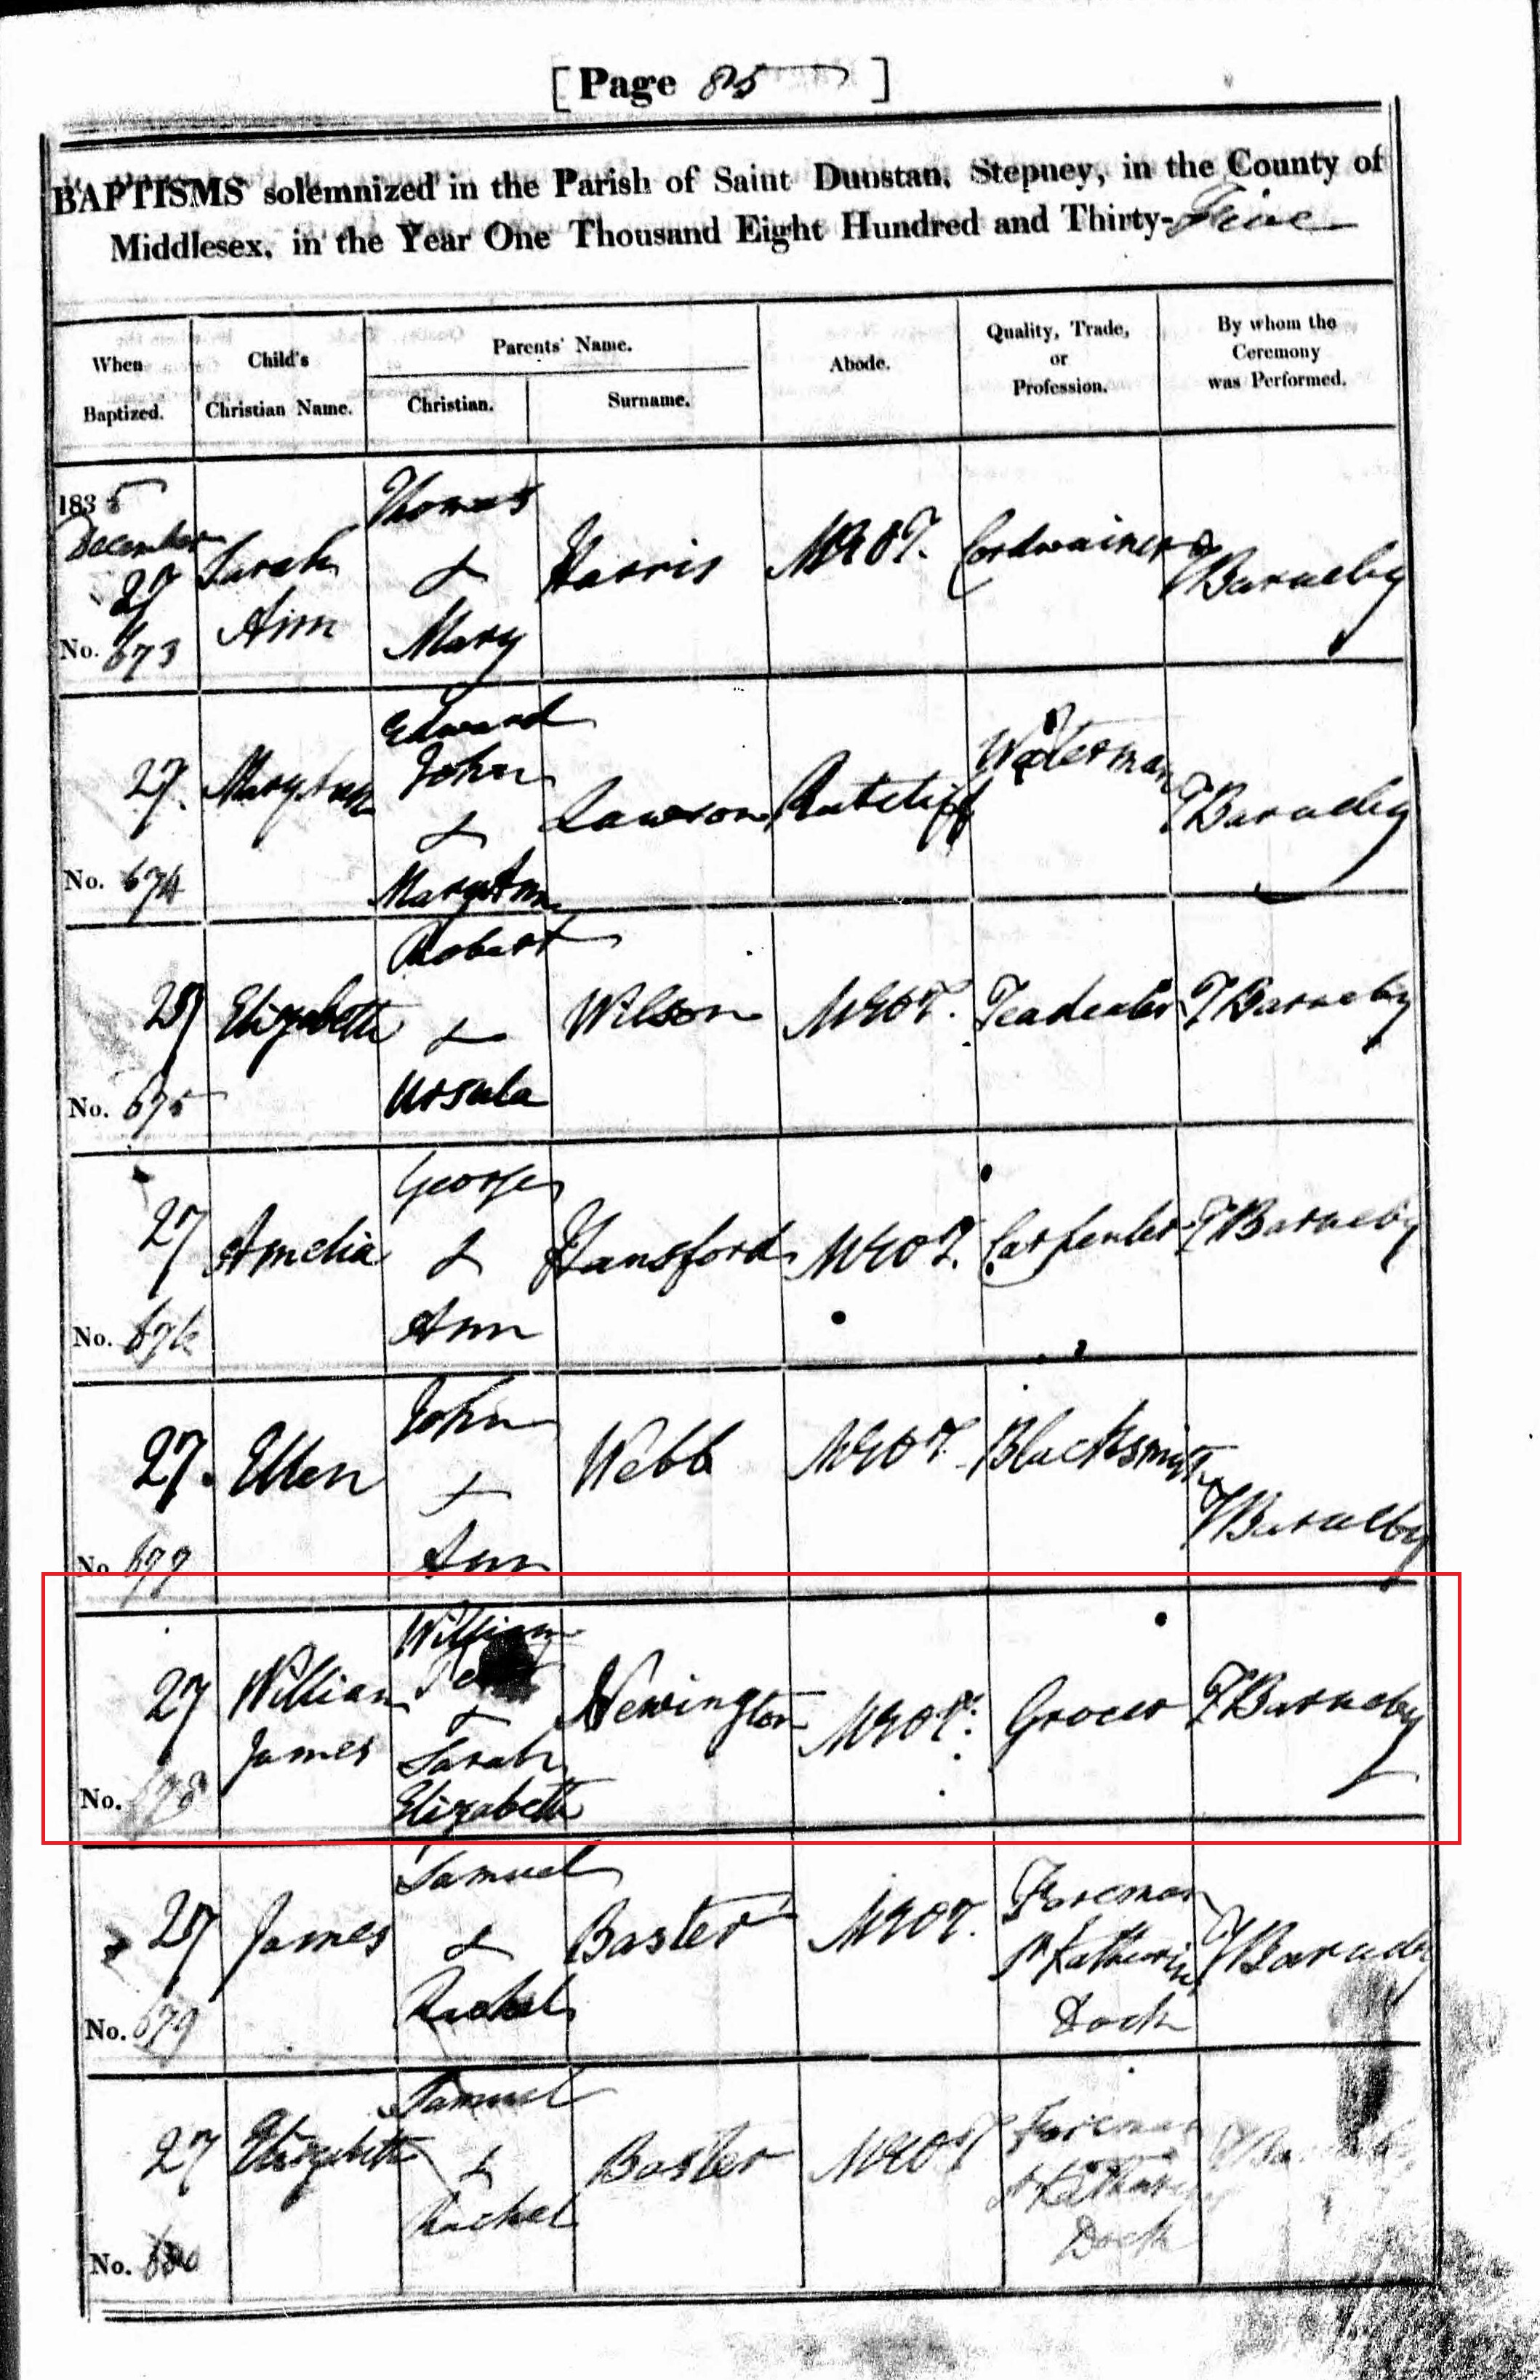 [Page 85]
BAPTISMS solemnized in the Parish of Saint Dunstan, Stepney, in the County of
Middlesex, in the Year One Thousand Eight Hundred and Thirty-Five
When Baptized.
Child's Christian Name.
Parents' Name.
Christian.
Surname.
Abode.
Quality, Trade, or Profession.
By whom the Ceremony was Performed.
1835
December
27
No. 673
Sarah
Ann
Thomas
&
Mary
Harris
MEOT.
Cordwainer
T Barneby
27.
No. 674
Mary Ann
Edward
John
&
Mary Ann
Lawson
Ratcliff
Waterman
T Barneby
27
No. 675
Elizabeth
Robert
&
Ursula
Wilson
MEOT.
Teadealer
T Barneby
27
No. 676
Amelia
George
&
Ann
Hansford
MEOT.
Carpenter
T Barneby
27.
No. 677
Ellen
John
&
Ann
Webb
MEOT
Blacksmith
T Barneby
27
No. 678
William
James
William
&
Sarah
Elizabeth
Newington
MEOT.
Grocer
T Barneby
27
No. 679
James
Samuel
&
Rachel
Baster
MEOT.
Foreman
St Katherine
Dock
T Barneby
27
No. 680
Elizabeth
Samuel
&
Rachel
Baster
MEOT
Foreman
St Katharine
Dock